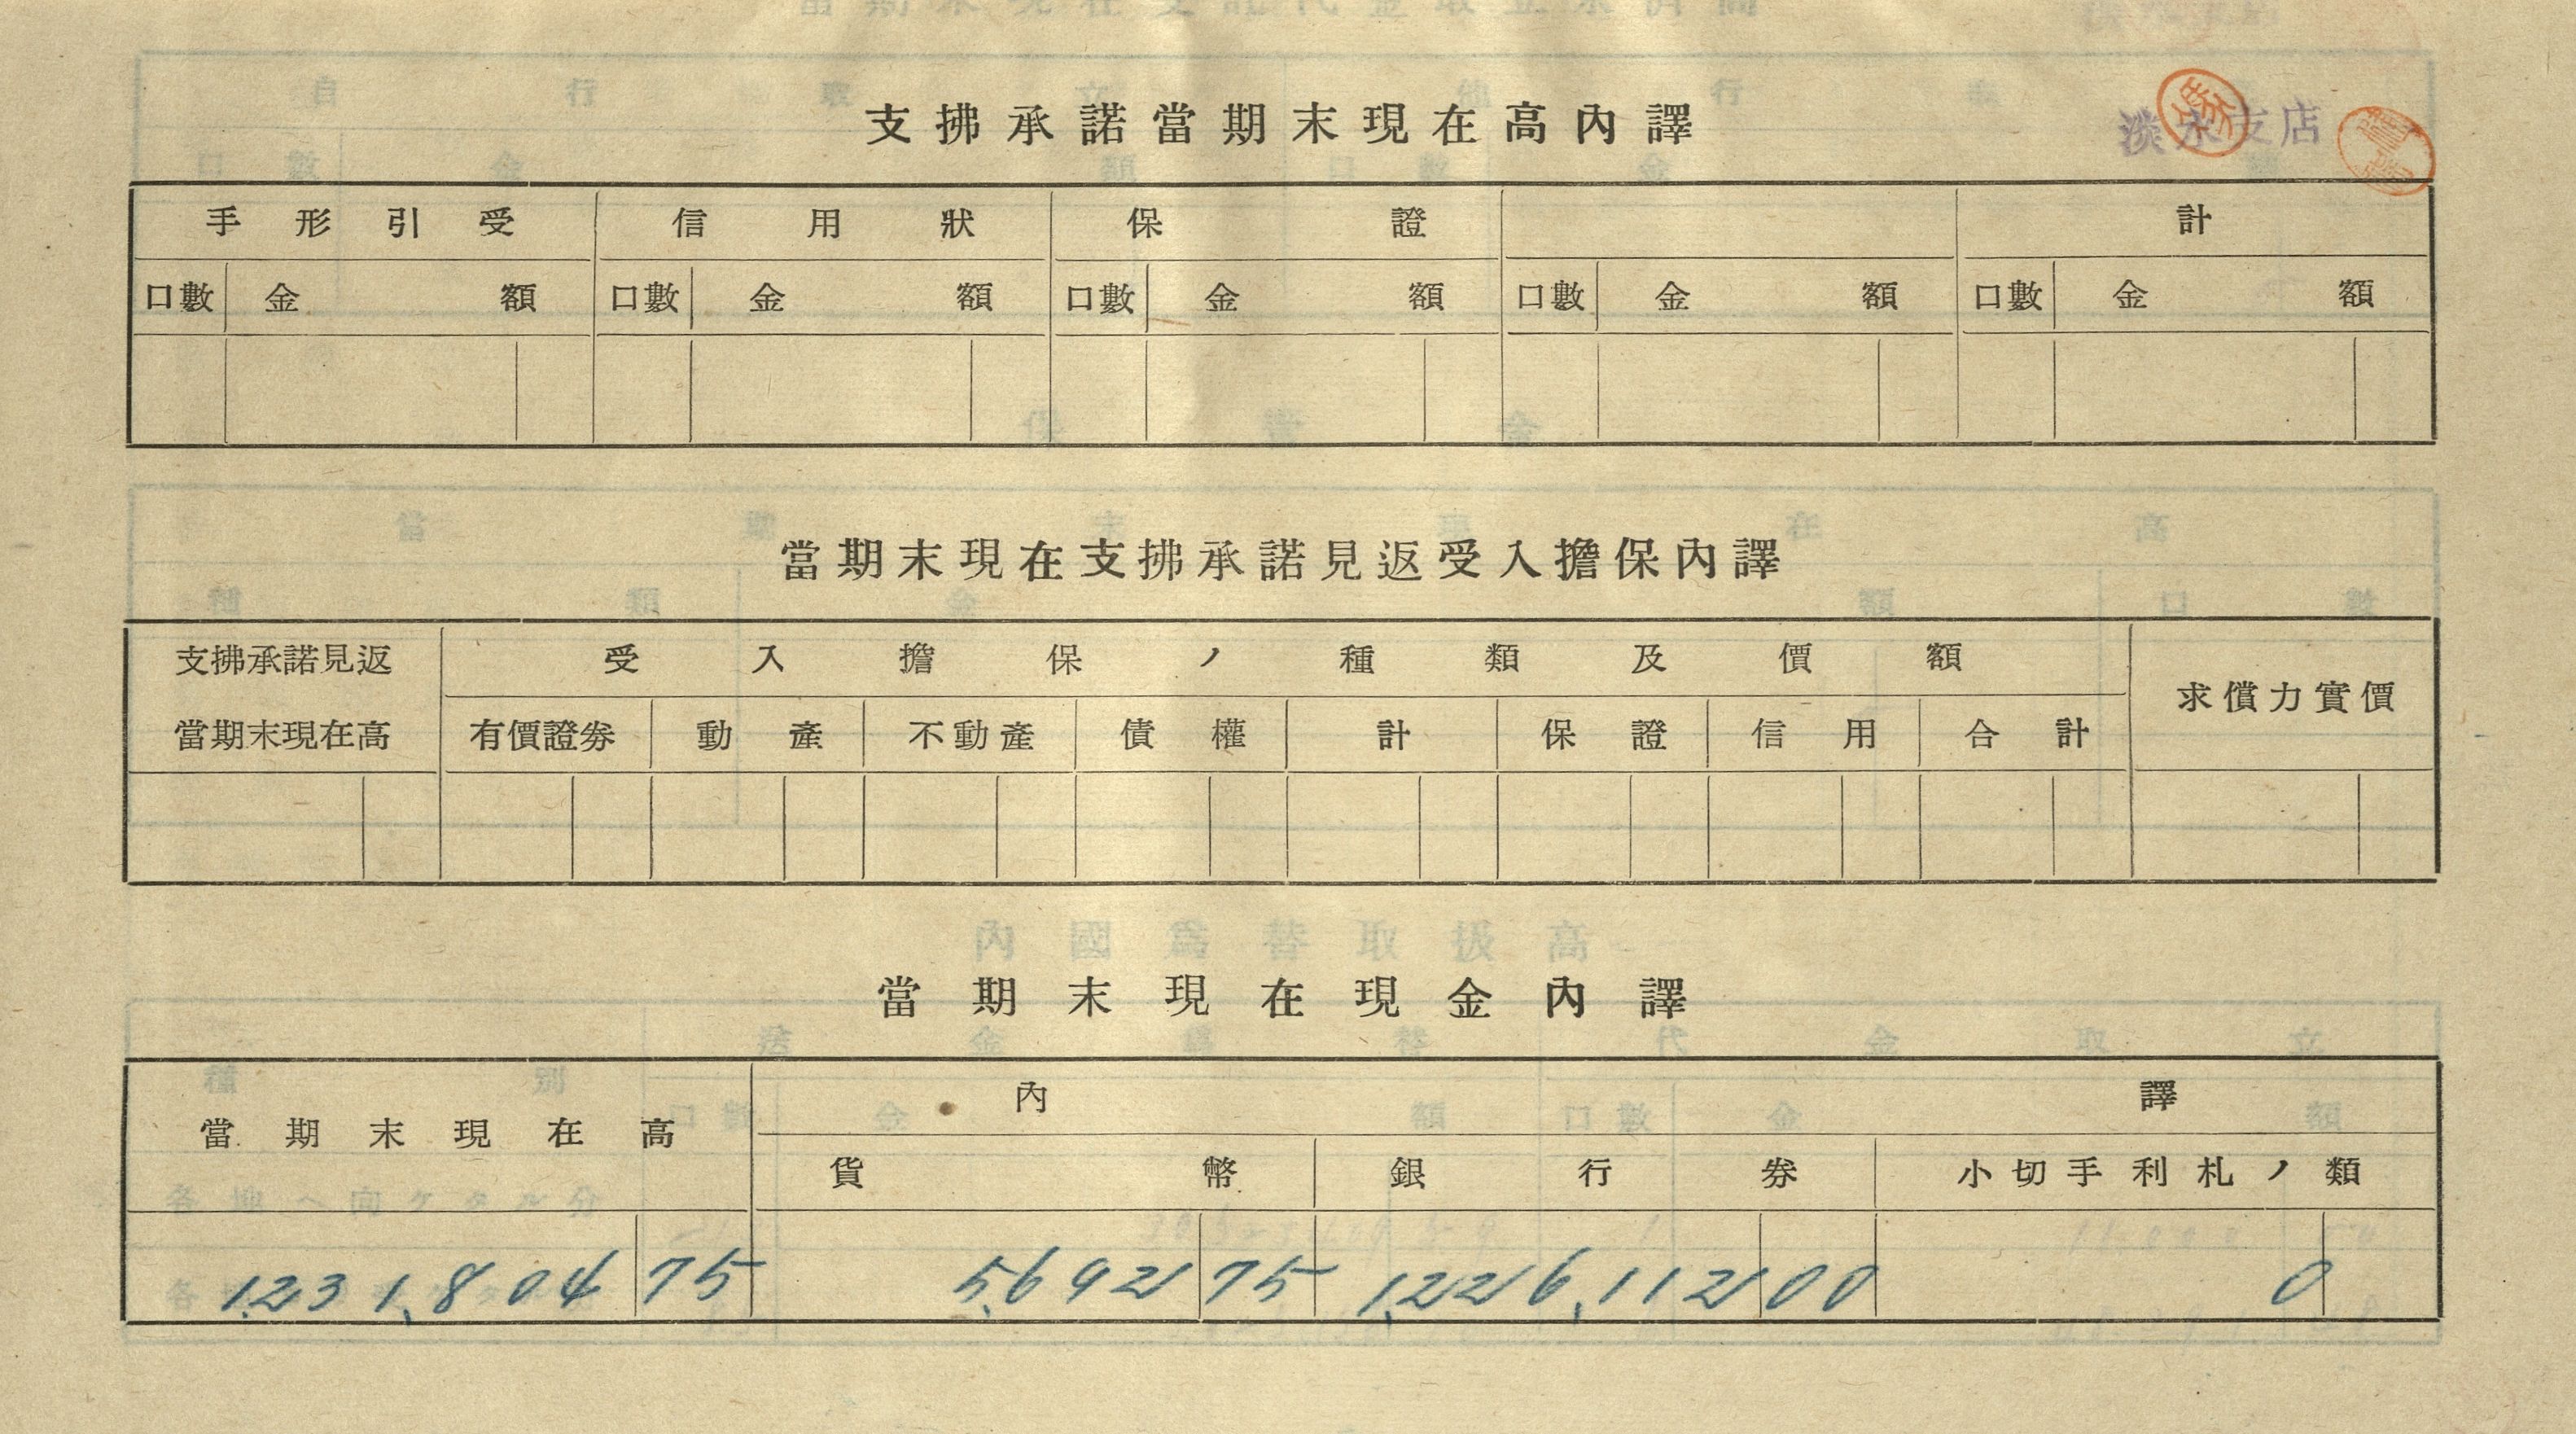 支拂承諾當期末現在高內譯
淡水支店
手形引受 信用狀 保證 計
口數 金額 口數 金額 口數 金額 口數 金額 口數 金額
當期末現在支拂承諾見返受入擔保內譯
支拂承諾見返 受入擔保ノ種類及價額
求償力實價
當期末現在高 有價證券 動產 不動產 債權 計 保證 信用 合計
當期末現在現金內譯
內譯
當期末現在高
貨幣 銀行券 小切手利札ノ類
1,231,804 75 5,692 75 1,226,112 00 0